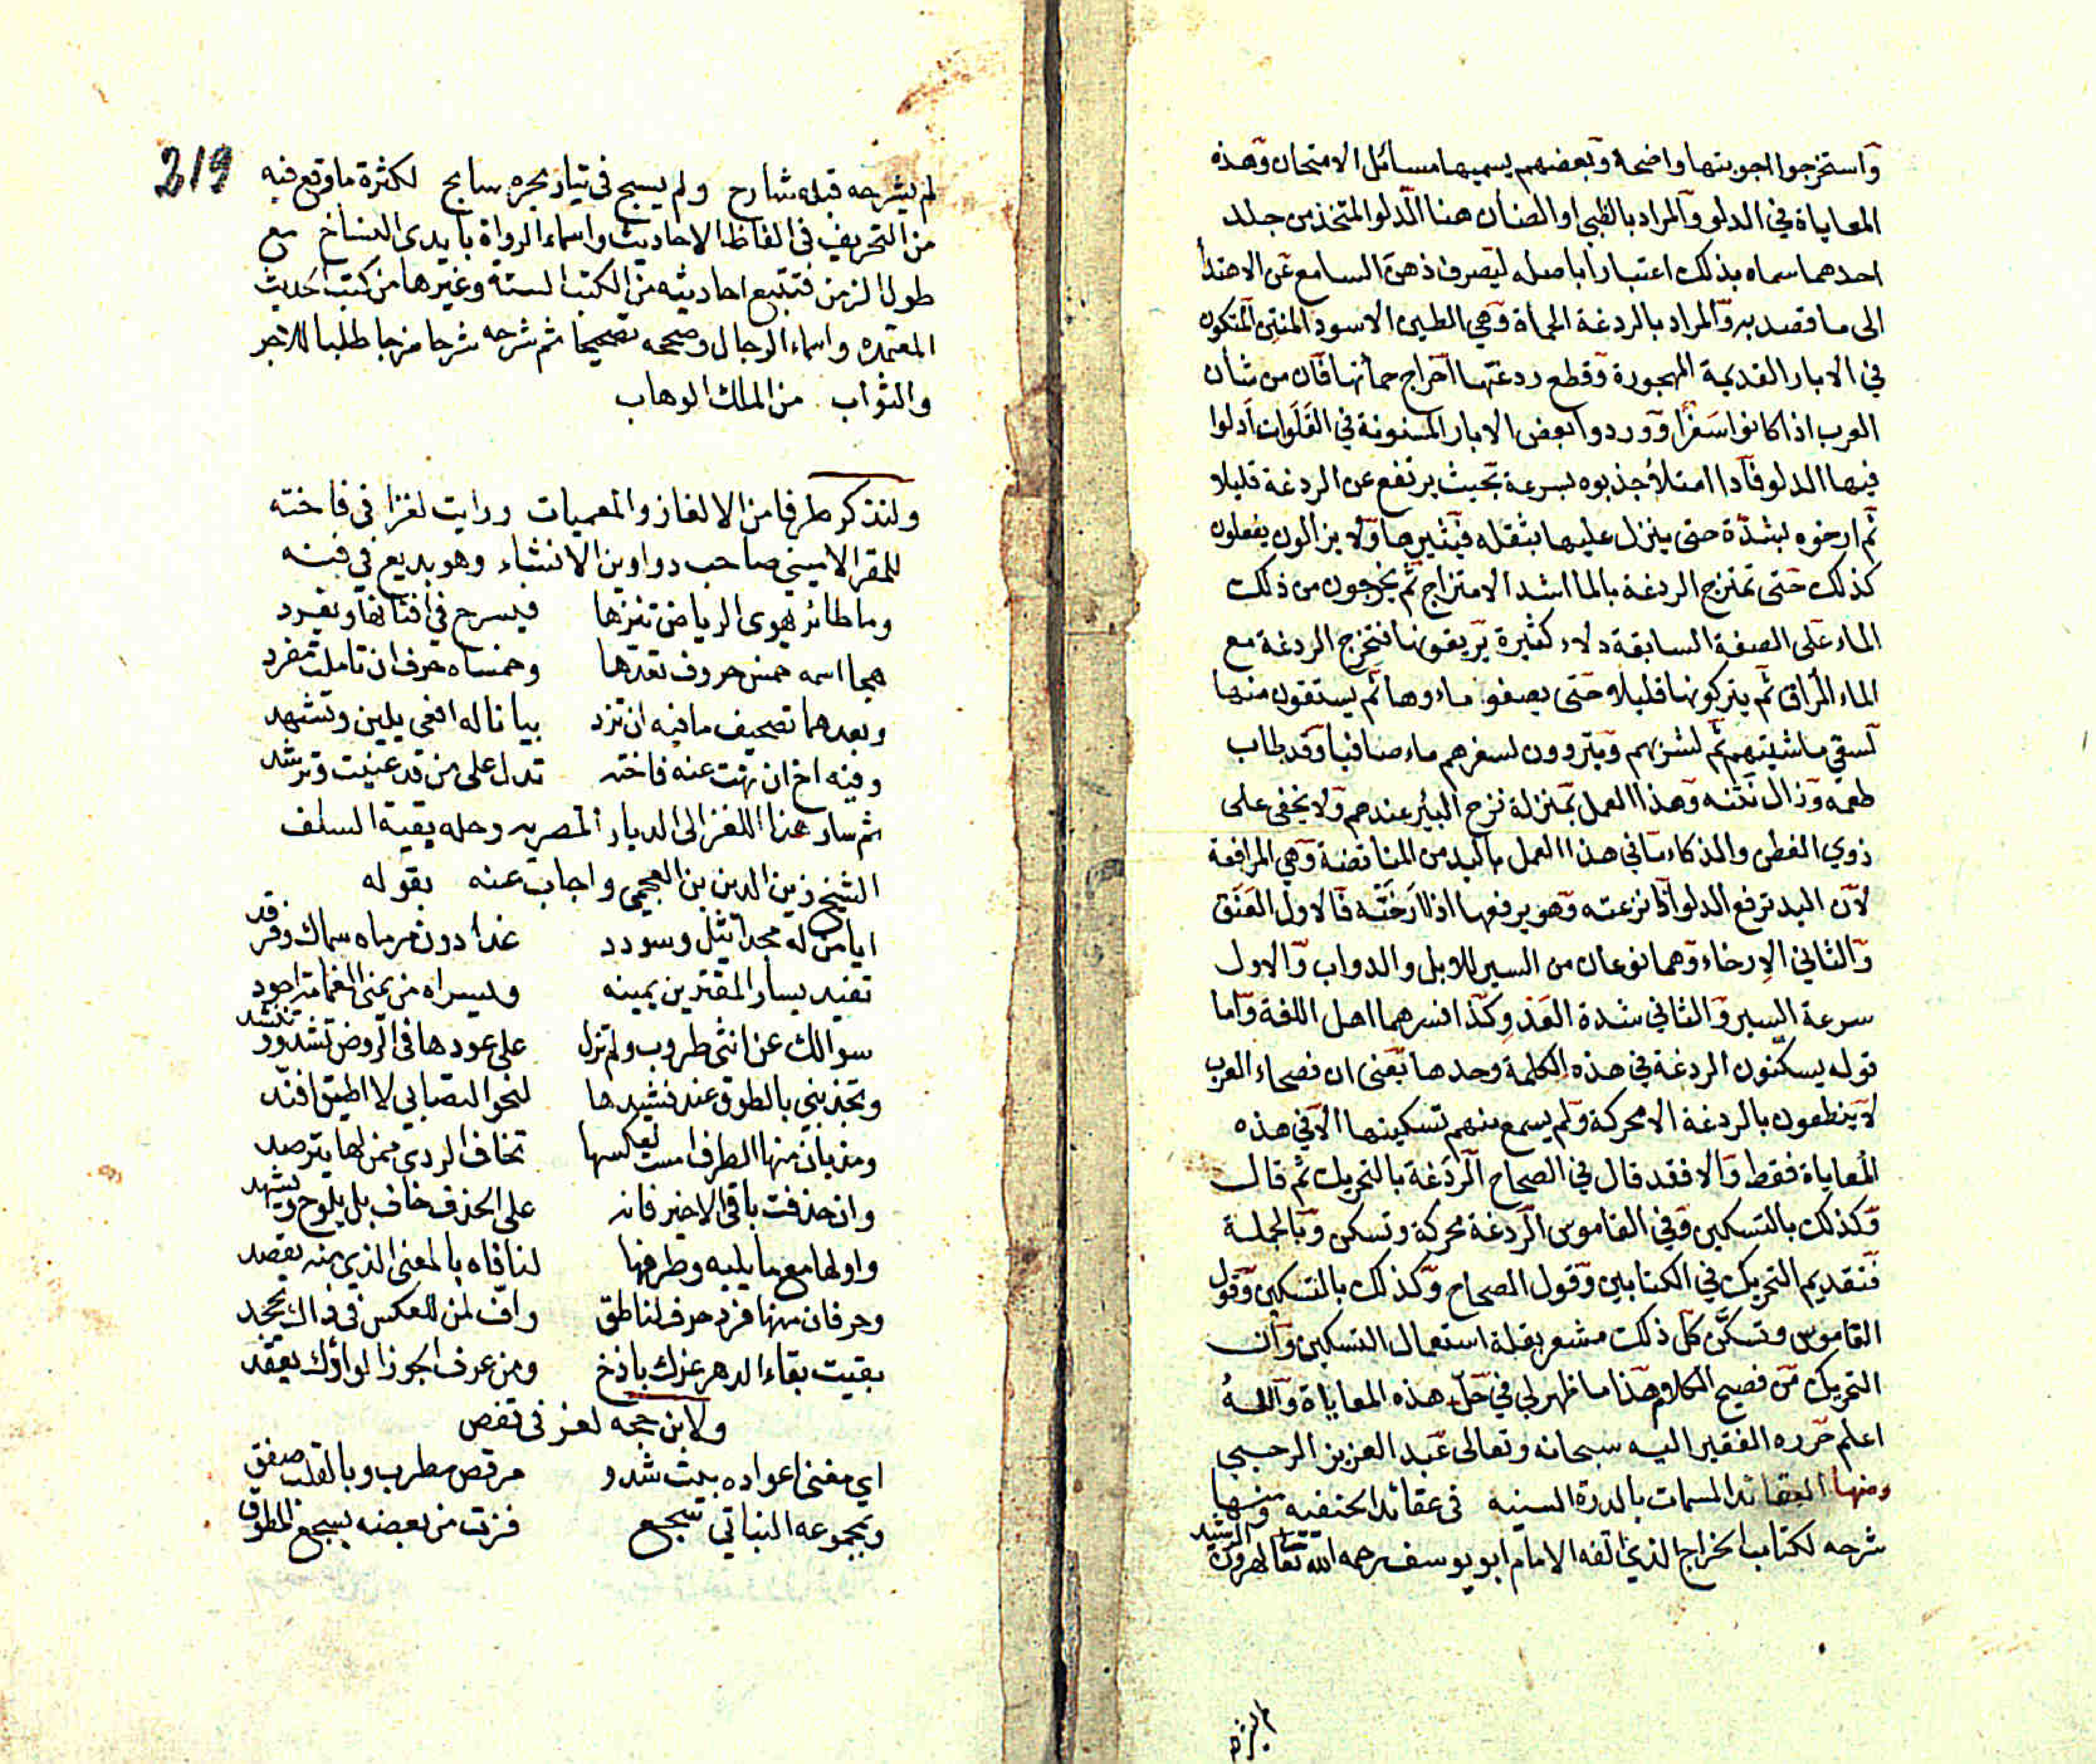 وَاستخرجوا اجوبتها واضحة وبعضهم يسميها مسائل الامتحان وهذه
المعاياة في الدلو والمراد بالظبي او الضان هنا الدلو المتخذ من جلد
احدهما سماه بذلك اعتبارا باصله ليصرف ذهن السامع عن الاهتدا
الى ما قصد به والمراد بالردغة الحمأة وهي الطين الاسود المنتن المتكون
في الابار القديمة المهجورة وقطع ردغتها اخراج حمأتها فان من شان
العرب اذا كانوا سفرا ووردوا بعض الابار المسنونة في الفلوات ادلوا
فيها الدلو فاذا امتلأ جذبوه بسرعة بحيث يرتفع عن الردغة قليلا
ثم ارخوه بشدة حتى ينزل عليها بثقله فيثيرها ولا يزالون يفعلون
كذلك حتى تمتزج الردغة بالما اشد الامتزاج ثم يخرجون من ذلك
الماء على الصفة السابقة دلاء كثيرة يريقونها فتخرج الردغة مع
الماء المراق ثم يتركونها قليلا حتى يصفو ماءوها ثم يستقون منها
لسقي ماشيتهم ثم لشربهم ويتزودون لسفرهم ماء صافيا وقد طاب
طعمه وزال نتنه وهذا العمل بمنزلة نزح البئر عندهم ولا يخفى على
ذوي الفطن والذكاء ما في هذا العمل باليد من المناقضة وهي المرافعة
لان اليد ترفع الدلو اذا نزعته وهو يرفعها اذا ارخته فالاول العنق
والثاني الارخاء وهما نوعان من السير للابل والدواب والاول
سرعة السير والثاني شدة العَدْو وكذا فسرهما اهل اللغة واما
قوله يسكنون الردغة في هذه الكلمة وحدها يعنى ان فصحاء العرب
لا ينطقون بالردغة الا محركة ولم يسمع منهم تسكينها الا في هذه
المعاياة فقط والا فقد قال في الصحاح الردغة بالتحريك ثم قال
وكذلك بالتسكين وفي القاموس الردغة محركة وتسكن وبالجملة
فتقديم التحريك في الكتابين وقول الصحاح وكذلك بالتسكين وقول
القاموس وتسكن كل ذلك مشعر بقلة استعمال التسكين وان
التحريك من فصيح الكلام هذا ما ظهر لي في حل هذه المعاياة والله
اعلم حرره الفقير اليه سبحانه وتعالى عبد العزيز الرحبي
ومنها العقائد المسمات بالدرة السنيه في عقائد الحنفيه ومنها
شرحه لكتاب الخراج الذي الفه الامام ابو يوسف رحمه الله تعا لهرون الرشيد
لم يشرحه
219
لم يشرحه قبله شارح ولم يسبح في تيار بحره سابح لكثرة ما وقع فيه
من التحريف في الفاظ الاحاديث واسماء الرواة بايدى النساخ مع
طول الزمن فتتبع احاديثه من الكتب الستة وغيرها من كتب الحديث
المعتمده واسماء الرجال وصححه تصحيحا ثم شرحه شرحا مزجا طلبا للاجر
والثواب من الملك الوهاب
ولنذكر طرفا من الالغاز والمعميات ورايت لغزا في فاخته
للمقر الاميني صاحب دواوين الانشاء وهو بديع في فنه
وما طائر يهوى الرياض تنزها فيسرح في افنانها ويغرد
هجا اسمه خمس حروف تعدها وخمساه حرف ان تاملت مفرد
وبعدهما تصحيف ما فيه ان تزد بيانا له افعى يلين وتشهد
وفيه اخ ان نهت عنه فاخته تدل على من قد عنيت وترشد
ثم سار هذا اللغز الى الديار المصريه وحله بقية السلف
الشيخ زين الدين بن العجمي واجاب عنه بقوله
ايا من له مجد اثيل وسودد غدا دون مرماه سماك وفرقد
تفيد يسار المقترين يمينه ويسراه من يمنى الغمامة اجود
سوالك عن انثى طروب ولم تزل على عودها في الروض تشدو وتنشد
وتجذبني بالطوق عند نشيدها لنحو التصابي لا اطيق افند
ومذ بان منها الطرف امست بعكسها تخاف الردى ممن لها يترصد
وان حذفت باقى الاخير فانه على الحذف خاف بل يلوح ويشهد
واولها مع ما يليه وطرفها لنا فاه بالمعنى الذي منه يقصد
وحرفان منها فرد حرف لناطق واف لمن للعكس في ذاك يجحد
بقيت بقاء الدهر عزك باذخ ومن عرف الجوزا لواؤك يعقد
ولابن حجه لغز في قفص
اي مغنى اعواده بيت شدو مرقص مطرب وبالقلب صفق
وبمجموعه النباتي تسجع فزت من بعضه بسجع المطوق